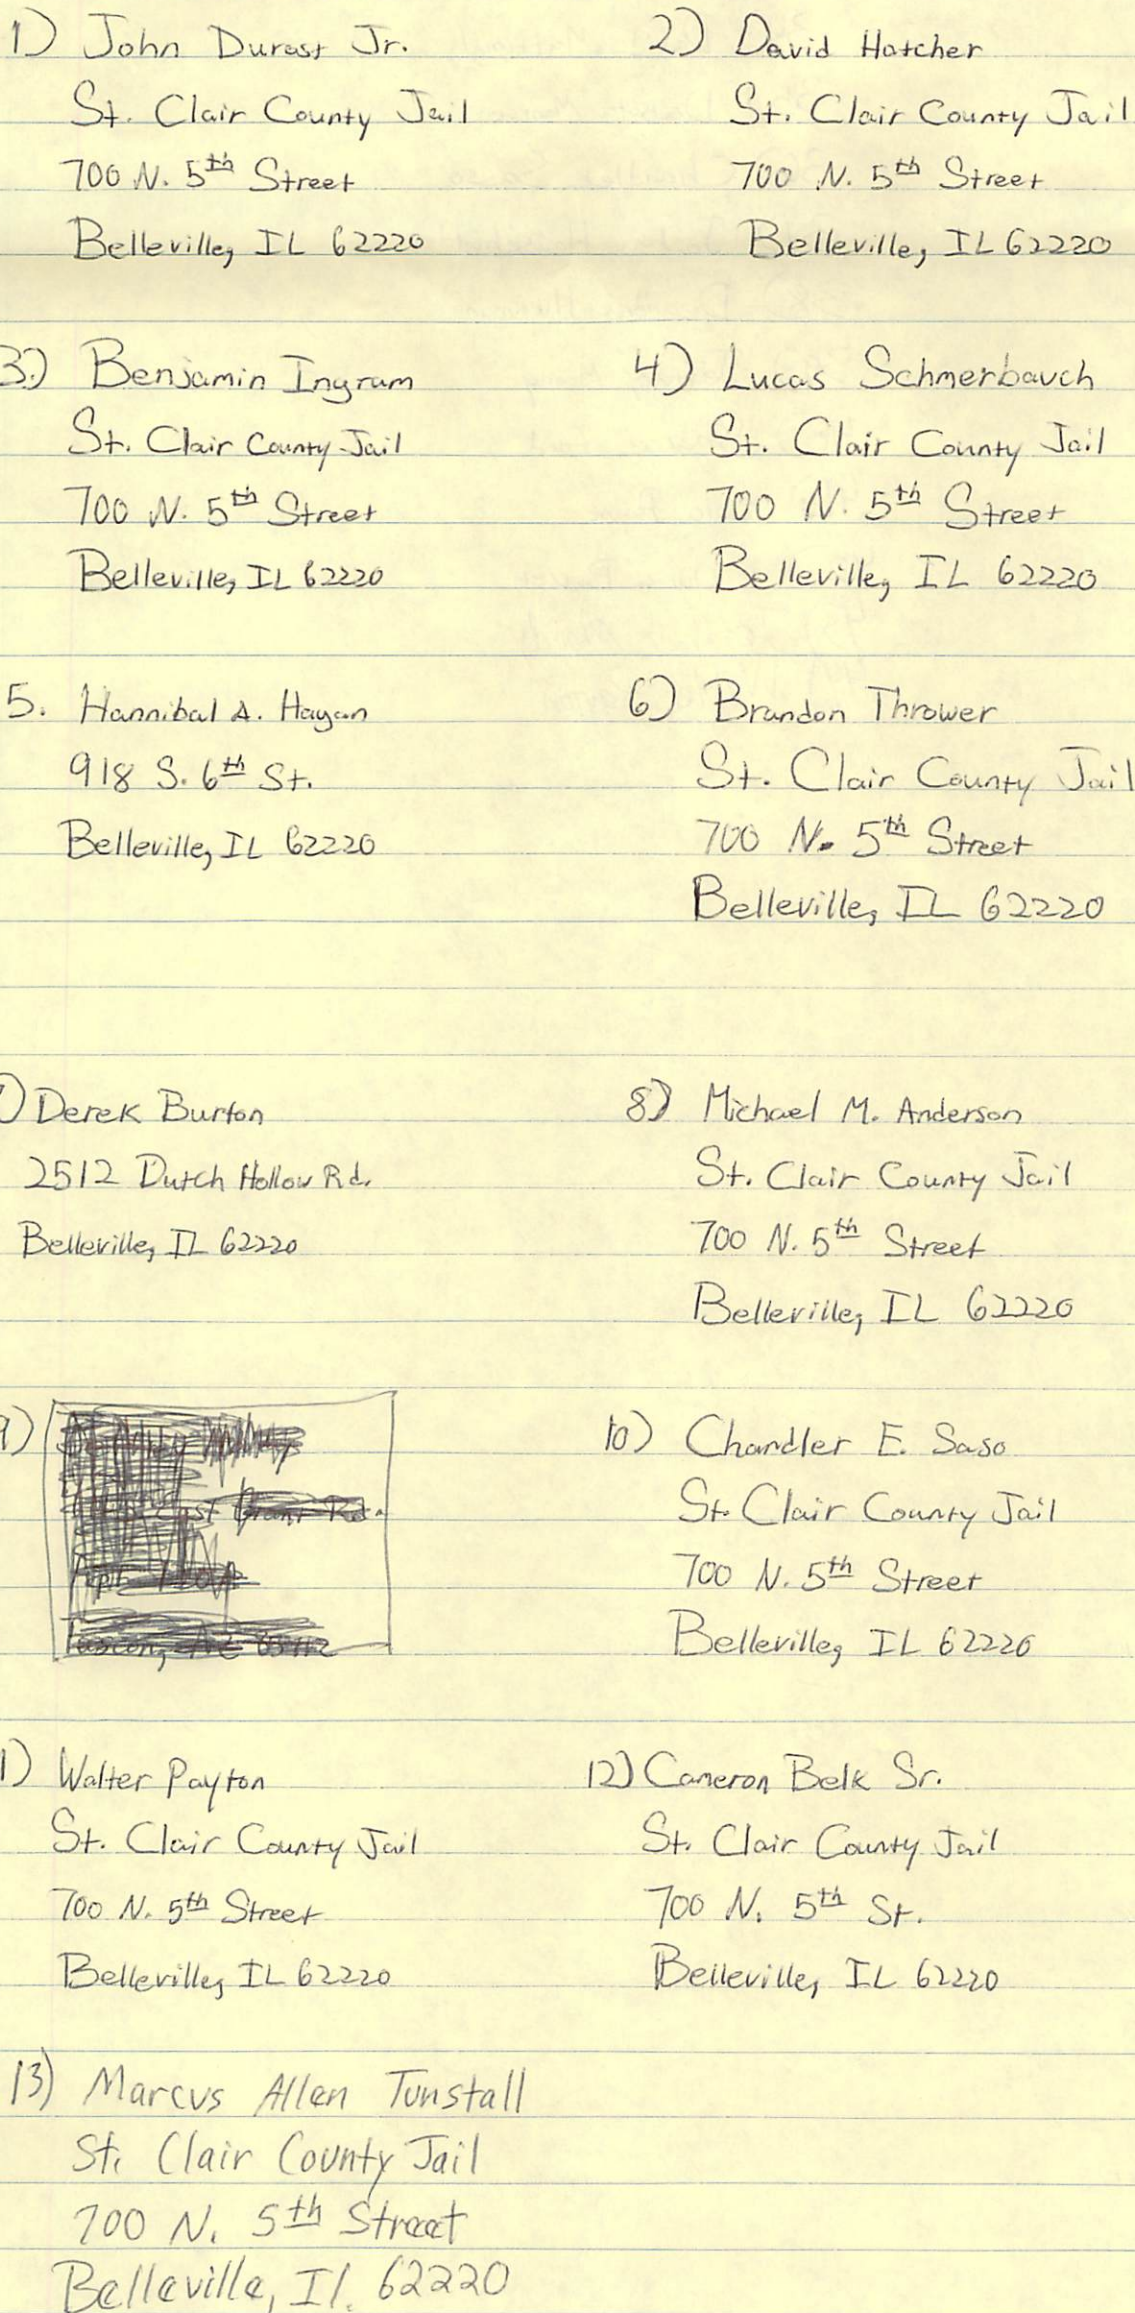 1) John Durast Jr.
St. Clair County Jail
700 N. 5th Street
Belleville, IL 62220
2) David Hatcher
St. Clair County Jail
700 N. 5th Street
Belleville, IL 62220
3.) Benjamin Ingram
St. Clair County Jail
700 N. 5th Street
Belleville, IL 62220
4) Lucas Schmerbauch
St. Clair County Jail
700 N. 5th Street
Belleville, IL 62220
5. Hannibal A. Hagan
918 S. 6th St.
Belleville, IL 62220
6) Brandon Thrower
St. Clair County Jail
700 N. 5th Street
Belleville, IL 62220
) Derek Burton
2512 Dutch Hollow Rd.
Belleville, IL 62220
8) Michael M. Anderson
St. Clair County Jail
700 N. 5th Street
Belleville, IL 62220
9)
East Grant Rd.
10) Chandler E. Saso
St. Clair County Jail
700 N. 5th Street
Belleville, IL 62220
1) Walter Payton
St. Clair County Jail
700 N. 5th Street
Belleville, IL 62220
12) Cameron Belk Sr.
St. Clair County Jail
700 N. 5th St.
Belleville, IL 62220
13) Marcus Allen Tunstall
St. Clair County Jail
700 N. 5th Street
Belleville, Il. 62220